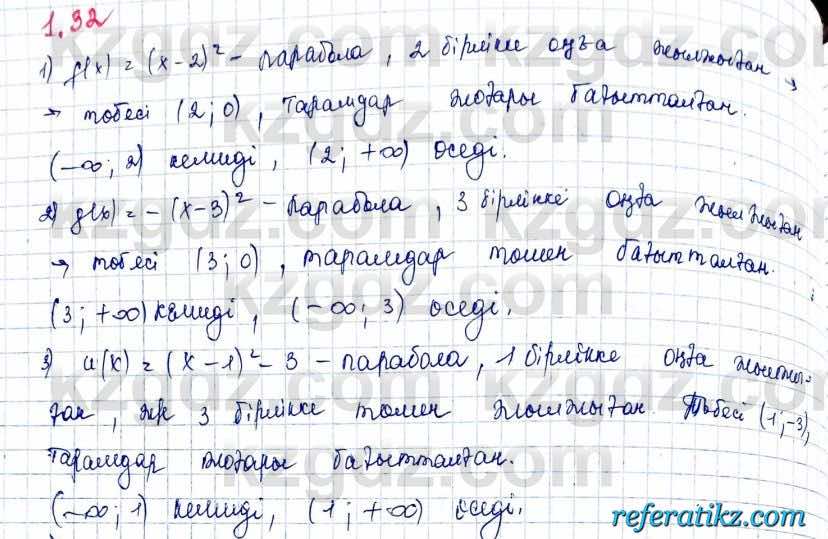 1.32
1) f(x) = (x-2)² - парабола, 2 бірлікке оңға жылжыған,
→ төбесі (2;0), тарамдар жоғары бағытталған.
(-∞; 2) кемиді, (2; +∞) өседі.
2) g(x) = -(x-3)² - парабола, 3 бірлікке оңға жылжыған
→ төбесі (3;0), тарамдар төмен бағытталған.
(3; +∞) кемиді, (-∞; 3) өседі.
3) u(x) = (x-1)² - 3 - парабола, 1 бірлікке оңға жылжы-
ған, 3 бірлікке төмен жылжыған. Төбесі (1;-3),
Тарамдар жоғары бағытталған.
(-∞; 1) кемиді, (1; +∞) өседі.
referatikz.com